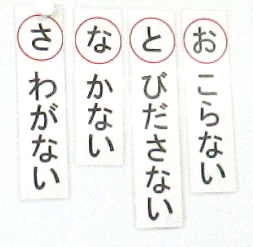 おこらない
とびださない
なかない
さわがない